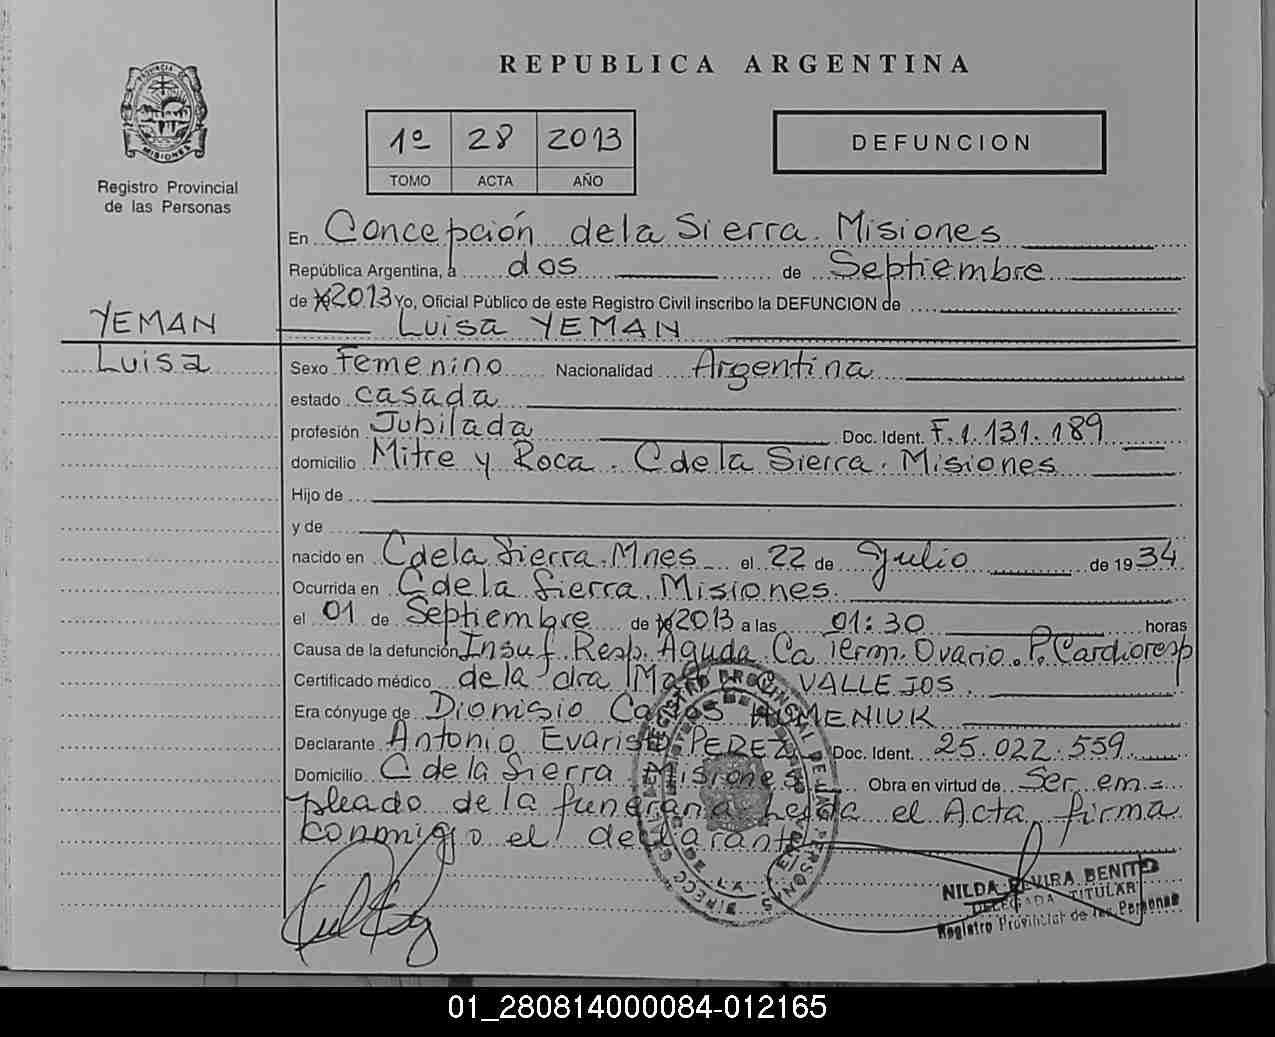 REPUBLICA ARGENTINA
PROVINCIA DE
MISIONES
Registro Provincial
de las Personas
1º 28 2013
TOMO ACTA AÑO
DEFUNCION
En Concepción de la Sierra. Misiones
República Argentina, a dos de Septiembre
de 2013 Yo, Oficial Público de este Registro Civil inscribo la DEFUNCION de
YEMAN Luisa YEMAN
Luisa Sexo Femenino Nacionalidad Argentina
estado casada
profesión Jubilada Doc. Ident. F.1.131.189
domicilio Mitre y Roca. C de la Sierra. Misiones
Hijo de
y de
nacido en C de la Sierra. Mnes el 22 de Julio de 1934
Ocurrida en C de la Sierra Misiones.
el 01 de Septiembre de 2013 a las 01:30 horas
Causa de la defunción Insuf. Resp. Aguda Ca Term. Ovario. P. Cardioresp
Certificado médico de la dra VALLEJOS.
Era cónyuge de Dionisio Carlos HUMENIUK
Declarante Antonio Evaristo PEREZ Doc. Ident. 25.022.559
Domicilio C de la Sierra. Misiones Obra en virtud de Ser em=
pleado de la funeraria Leida el Acta, firma
conmigo el declarante
NILDA ELVIRA BENITO
DELEGADA TITULAR
Registro Provincial de las Personas
01_280814000084-012165